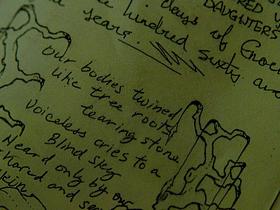 RED
DAUGHTERS
days of Enoc
hundred sixty and
years.
our bodies twined
like tree roots
tearing stone
Voiceless cries to a
Blind sky
Heard only by our
shared and